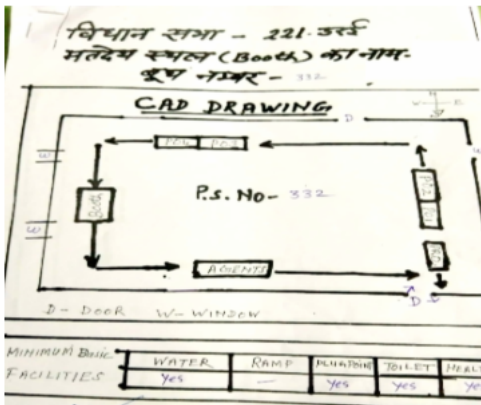 विधान सभा - 221. उरई
मतदेय स्थल (Booth) का नाम-
बूथ नम्बर - 332
CAD DRAWING
D
W
P.S. No- 332
Booth
W
AGENTS
D
D - DOOR W - WINDOW
MINIMUM Basic FACILITIES
WATER RAMP PLUGPOINT TOILET
Yes — Yes Yes Yes